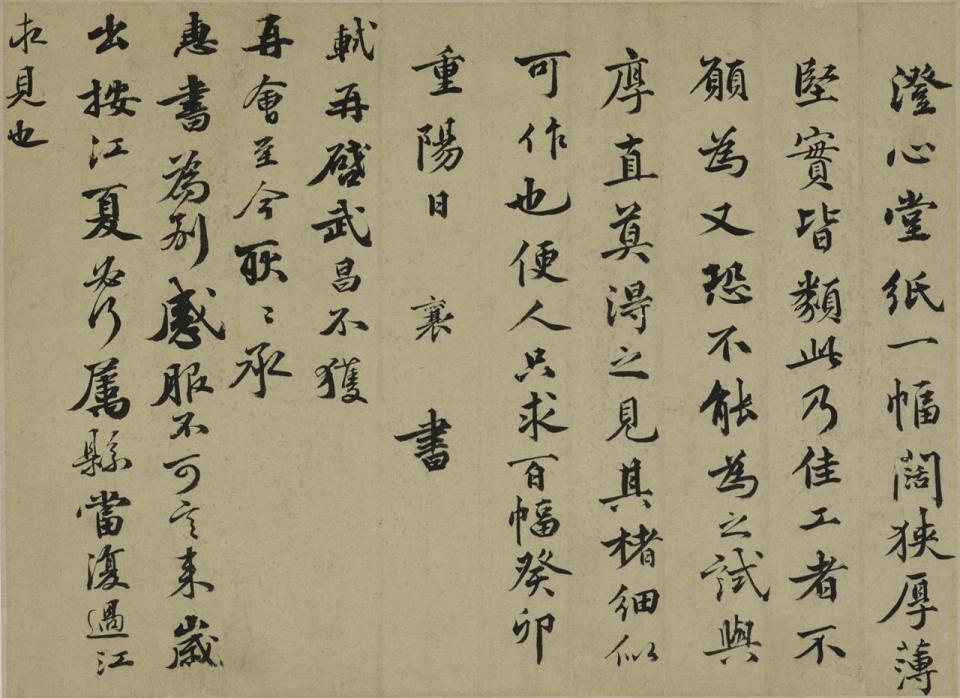 澄心堂紙一幅闊狹厚薄
堅實皆類此乃佳工者不
願為又恐不能為之試與
厚直莫得之見其楮細似
可作也便人只求百幅癸卯
重陽日 襄 書
軾再啟武昌不獲
再會至今耿〻承
惠書為別感服不可言來歲
出按江夏必行屬縣當復過江
求見也